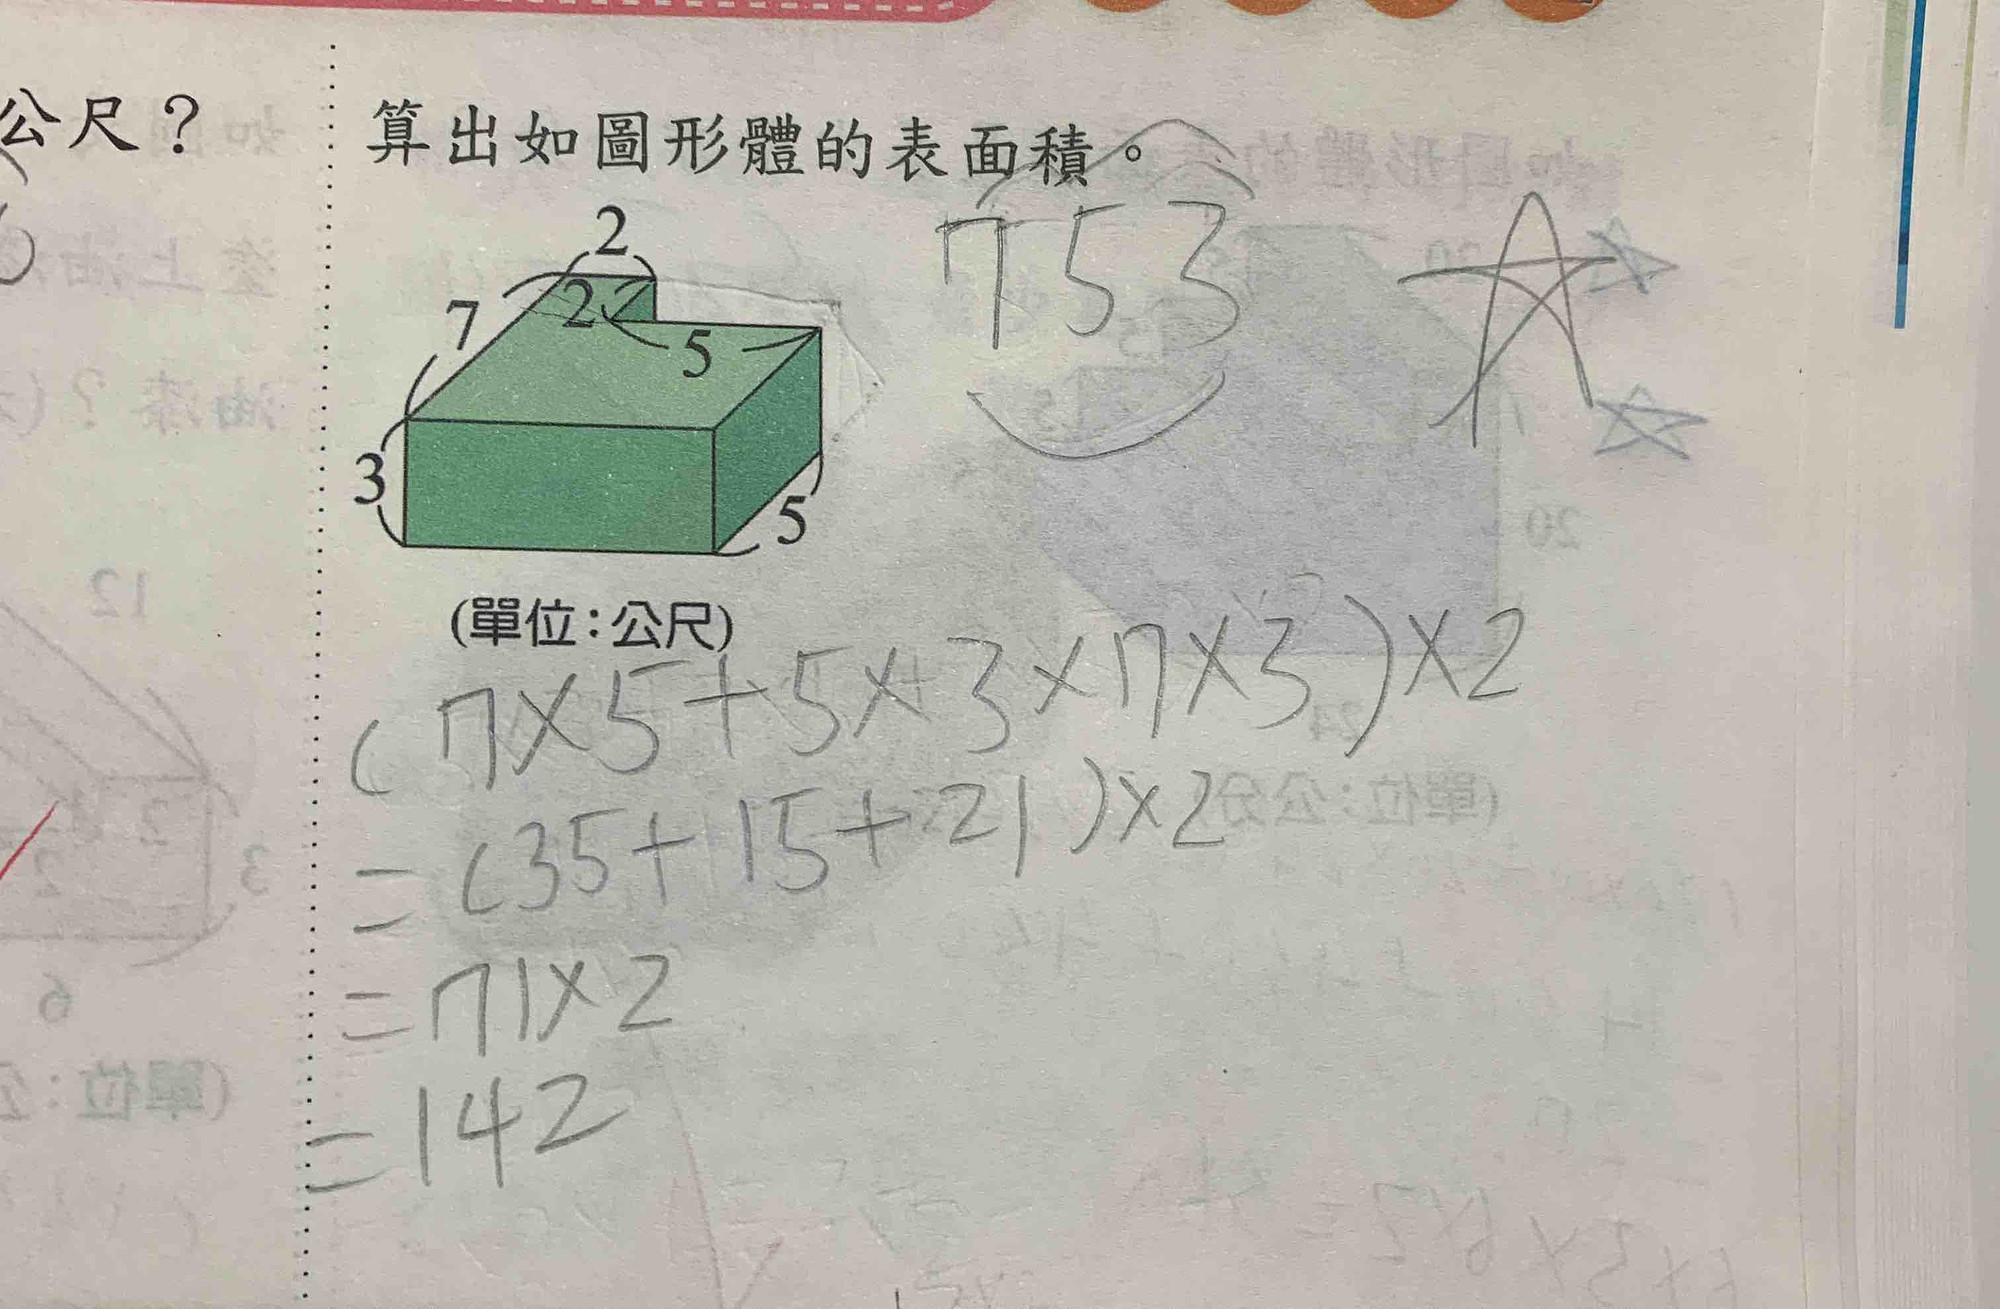 公尺？
算出如圖形體的表面積。
2
7
2
5
3
5
(單位：公尺)
753
(7×5+5×3×7×3)×2
=(35+15+21)×2
=71×2
=142